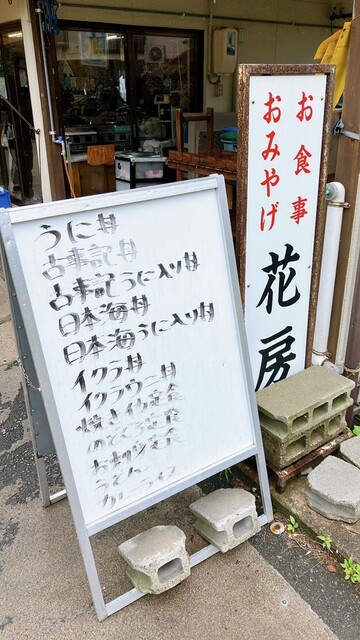 うに丼
古事記丼
古事記うに入り丼
日本海丼
日本海うに入り丼
イクラ丼
イクラウニ丼
焼きイカ定食
お刺身定食
うどん
カレーライス
お食事
おみやげ
花房